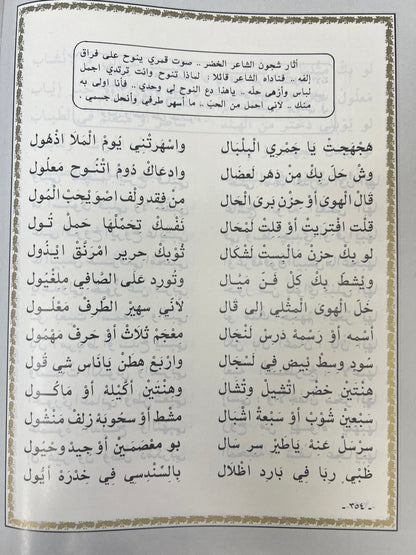 أثار شجون الشاعر الخضر .. صوت قمري ينوح على فراق
إلفه .. فناداه الشاعر قائلا : لماذا تنوح وأنت ترتدي اجمل
لباس وأزهى حله .. ياهذا دع النوح لي وحدي .. فأنا اولى به
منك .. لأني احمل من الحب .. ما أسهر طرفي وأنحل جسمي .
هَجْهَجِتْ يَا جمْرِي الْبِلْبَال وِاسْهَرتْنِي يَوْمَ الْمَلَا اذْهُول
وِشْ حَلَّ بِكْ مِنْ دَهر لَعضَال وِادعَاكْ دُومْ اتْنُوح مَعلُول
قَالْ الْهوَى أوْ حزْن بَرَى الْحَال مِنْ فِقد ولْف اصوَيحْب الْمُول
قلت افْتَريْتْ أوْ قلتْ لَمْحَال نَفْسكْ تِحَمّلْهَا حِمل تُول
لَوْ بِكْ حزنْ مَالْبِستْ لَشْكَال ثُوبكْ حرِير امْرَنَّقْ ايْذُول
وِيْشطْ بِكْ كِلّ فَنْ مَيّال وِتُورد عَلى الصَّافِي مِلغْيُول
خَلْ الْهوَى الْمثْلِي إلى قَال لَأنِّي سهِير الطَّرفْ مَعْلُول
أسْمه أوْ رسْمهْ دَرسْ لَنْجَال مَعْجَمْ ثَلَاثْ أوْ حَرفْ مَهْمُول
سُودٍ وسطْ بَيضٍ فِي لَسْجَال وِارْبَعْ هِطَنْ يَانَاسْ شِي قُول
هِنْتَينْ خَضْر اتْشيلْ وتْشَال وهِنْتَينْ أكِيلَهْ أوْ مَاكُول
سَبعِينْ شُوبْ أوْ سَبعَةْ اشْبَال مِشْط أوْ سحُوبَهْ زلفْ مَنْشُول
سِرْسَلْ عَنهْ يَاطَيرْ سِر سَال بو مِعْصَمَيْن أوْ جِيدْ وحْيُول
ظَبْيٍ ربَا فِي بَارد اظْلَال بِالسُّنْدسِي فِي خِدرَهْ أيُول
-٣٥٤-